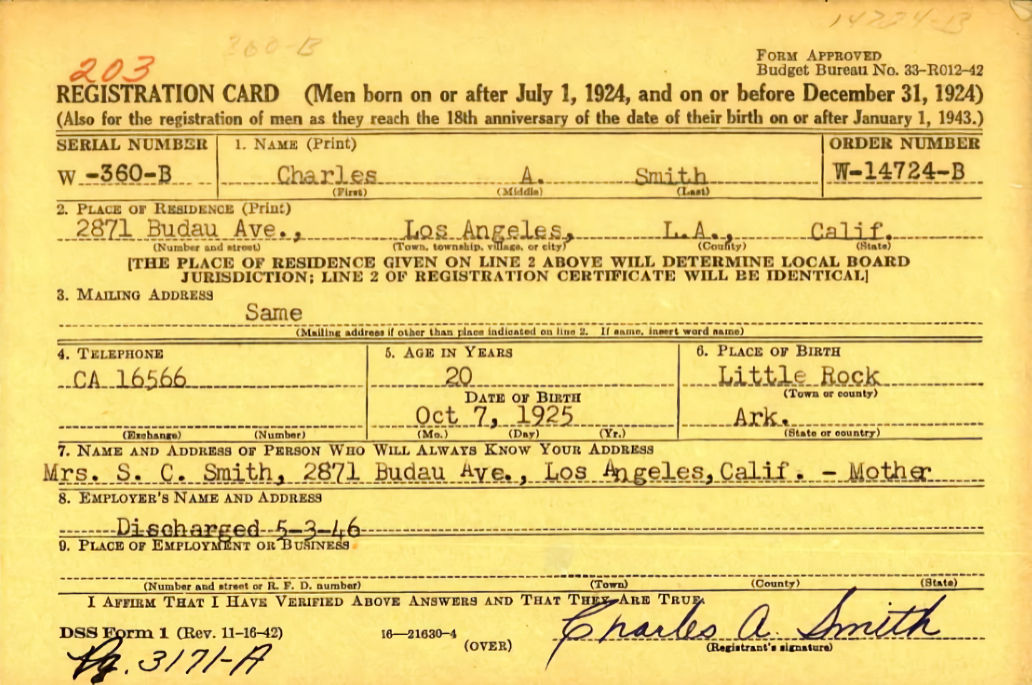 360-B
203
FORM APPROVED
Budget Bureau No. 33-R012-42
REGISTRATION CARD (Men born on or after July 1, 1924, and on or before December 31, 1924)
(Also for the registration of men as they reach the 18th anniversary of the date of their birth on or after January 1, 1943.)
SERIAL NUMBER 1. NAME (Print) ORDER NUMBER
W -360-B Charles A. Smith W-14724-B
(First) (Middle) (Last)
2. PLACE OF RESIDENCE (Print)
2871 Budau Ave., Los Angeles, L.A., Calif.
(Number and street) (Town, township, village, or city) (County) (State)
[THE PLACE OF RESIDENCE GIVEN ON LINE 2 ABOVE WILL DETERMINE LOCAL BOARD
JURISDICTION; LINE 2 OF REGISTRATION CERTIFICATE WILL BE IDENTICAL]
3. MAILING ADDRESS
Same
(Mailing address if other than place indicated on line 2. If same, insert word same)
4. TELEPHONE 5. AGE IN YEARS 6. PLACE OF BIRTH
CA 16566 20 Little Rock
DATE OF BIRTH (Town or county)
Oct 7, 1925 Ark.
(Exchange) (Number) (Mo.) (Day) (Yr.) (State or country)
7. NAME AND ADDRESS OF PERSON WHO WILL ALWAYS KNOW YOUR ADDRESS
Mrs. S. C. Smith, 2871 Budau Ave., Los Angeles, Calif. - Mother
8. EMPLOYER'S NAME AND ADDRESS
Discharged 5-3-46
9. PLACE OF EMPLOYMENT OR BUSINESS
(Number and street or R. F. D. number) (Town) (County) (State)
I AFFIRM THAT I HAVE VERIFIED ABOVE ANSWERS AND THAT THEY ARE TRUE.
DSS Form 1 (Rev. 11-16-42) 16—21630-4 (OVER) Charles A. Smith
(Registrant's signature)
Pg. 3171-A